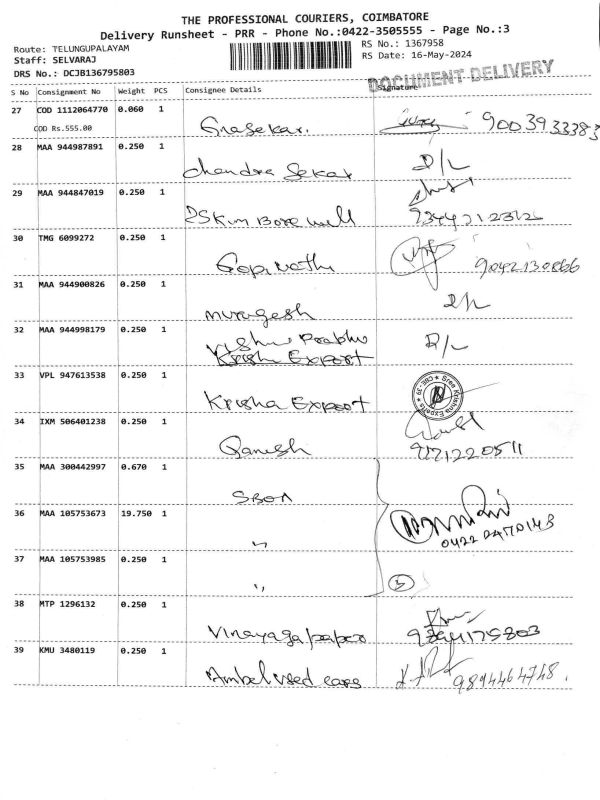 THE PROFESSIONAL COURIERS, COIMBATORE
Delivery Runsheet - PRR - Phone No.:0422-3505555 - Page No.:3
Route: TELUNGUPALAYAM
RS No.: 1367958
Staff: SELVARAJ
RS Date: 16-May-2024
DRS No.: DCJB136795803
DOCUMENT DELIVERY
S No Consignment No Weight PCS Consignee Details Signature
27 COD 1112064770 0.060 1 9003933383
COD Rs.555.00
28 MAA 944987891 0.250 1 Chandra Sekar D/L
29 MAA 944847019 0.250 1 Bore well 9344212312
30 TMG 6099272 0.250 1 Gopinath 9042130866
31 MAA 944900826 0.250 1 murugesh
32 MAA 944998179 0.250 1 Prabhu
Export
33 VPL 947613538 0.250 1 Krisha Export Sree Krishna Exports CBE-39
34 IXM 506401238 0.250 1 Ganesh 9171220511
35 MAA 300442997 0.670 1 SBOA
36 MAA 105753673 19.750 1 " 0422 2470148
37 MAA 105753985 0.250 1 " 3
38 MTP 1296132 0.250 1 Vinayaga paper 9894175803
39 KMU 3480119 0.250 1 Ambal used cars 9894464748